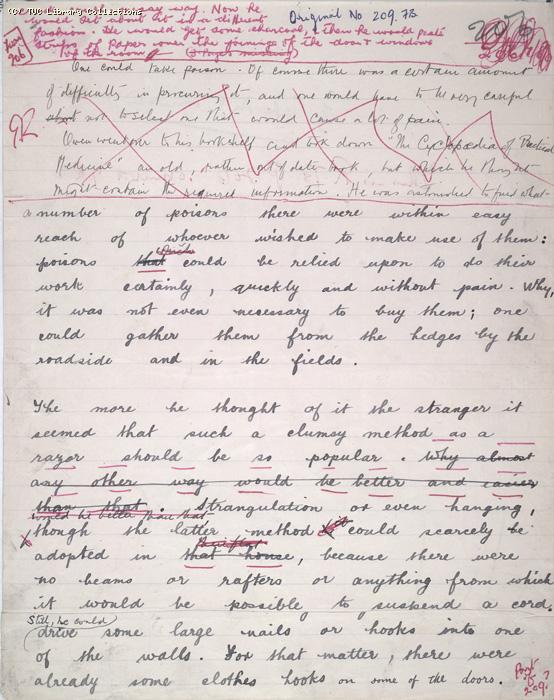 (c) TUC Library Collections
easy way. Now he
would set about it in a different
fashion. He would get some charcoal, then he would paste
strips of paper over the joinings of the door & windows
of the room
Original No 209.7B
206
One could take poison. Of course there was a certain amount
of difficulty in procuring it, and one would have to be very careful
not to select one that would cause a lot of pain.
Owen went over to his bookshelf and took down "The Cyclopædia of Practical
Medicine" an old, rather out of date book, but which he thought
might contain the required information. He was astonished to find what
a number of poisons there were within easy
reach of whoever wished to make use of them:
poisons that which could be relied upon to do their
work certainly, quickly and without pain. Why,
it was not even necessary to buy them; one
could gather them from the hedges by the
roadside and in the fields.
The more he thought of it the stranger it
seemed that such a clumsy method as a
razor should be so popular. Why almost
any other way would be better and easier
than that. Strangulation or even hanging,
would be better than that
though the latter method could scarcely be
adopted in that house, because there were
no beams or rafters or anything from which
it would be possible to suspend a cord.
Still, he could
drive some large nails or hooks into one
of the walls. For that matter, there were
already some clothes hooks on some of the doors.
Part
of
209